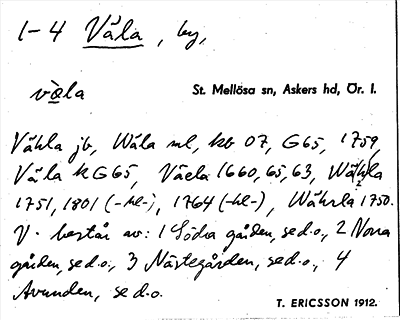 1-4 Våla, by,
vò̱la
St. Mellösa sn, Askers hd, Ör. l.
Våhla jb, Wåla ml, kb 07, G65, 1759,
Våla kG65, Våela 1660, 65, 63, Wåhla
1751, 1801 (-hl-), 1764 (-hl-), Wåhrla 1750.
V. består av: 1 Södra gården, se d.o., 2 Norra
gården, se d.o., 3 Nästegården, se d.o., 4
Avunden, se d.o.
T. ERICSSON 1912.